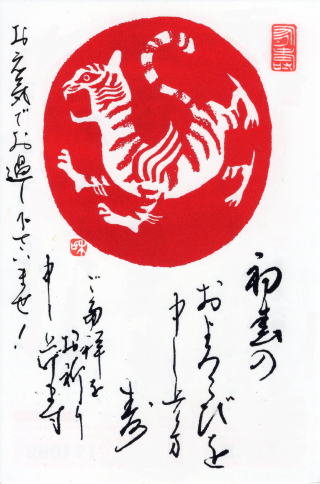 初春の
およろこびを
申し上げます
寿
ご多祥を
お祈り
申し上げます
お元気でお過し下さいませ!